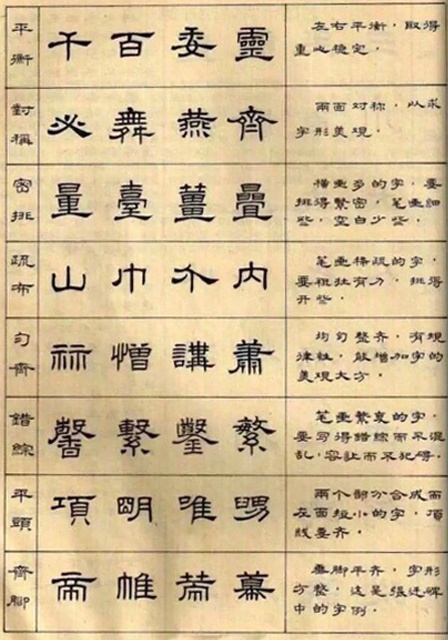 平衡
千 百 委 靈
左右平衡，取得
重心穩定。
對稱
必 舞 燕 齊
兩面对称，以求
字形美观。
密排
量 臺 薑 疊
横画多的字，要
排得繁密，笔画细
些，空白少些。
疏布
山 巾 介 内
笔画稀疏的字，
要粗壮有力，排得
开些。
匀齊
祘 憎 講 蕭
均匀整齐，有规
律性，能增加字的
美观大方。
錯綜
馨 繫 鑿 繁
笔画繁复的字，
要写得錯綜而不混
乱，容让而不犯碍。
平頭
項 明 唯
兩个部分合成而
左面短小的字，項
线要齐。
齊腳
帝 帷 幕
垂脚平齐，字形
方整，这是張迁碑
中的字例。